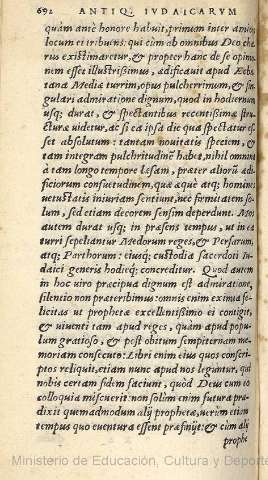 692 ANTIQ. IVDAICARVM
quàm antè honore habuit, primum inter amicos
locum ei tribuens: qui cùm ab omnibus Deo cha-
rus existimaretur, & propter hanc de se opinio-
nem esset illustrißimus, ædificauit apud Æcba-
tana Mediæ turrim, opus pulcherrimum, & sin-
gulari admiratione dignum, quod in hodiernum
usq; durat, & spectantibus recentißimæ stru-
cturæ uidetur, ac si ea ipsa die qua spectatur es-
set absolutum: tantam nouitatis speciem, et
tam integram pulchritudinē habet, nihil omnino
a tam longo tempore læsam, præter aliorū ædi-
ficiorum consuetudinem, quæ æquè atq; homines
uetustatis iniuriam sentiunt, nec formitatem so-
lum, sed etiam decorem sensim deperdunt. Mos
autem durat usq; in præsens tempus, ut in ea
turri sepeliantur Medorum reges, & Persarum,
atq; Parthorum: eiusq; custodia sacerdoti Iu-
daici generis hodieq; concreditur. Quod autem
in hoc uiro præcipua dignum est admiratione,
silentio non præteribimus: omnis enim eximia fe-
licitas ut prophetæ excellentißimo ei contigit,
& uiuenti tam apud reges, quàm apud popu-
lum gratioso, & post obitum sempiternam me-
moriam consecuto: Libri enim eius quos conscri-
ptos reliquit, etiam nunc apud nos leguntur, qui
nobis certam fidem faciunt, quòd Deus cum eo
colloquia miscuerit. non solùm enim futura præ-
dixit quemadmodum alij prophetæ, uerùm etiam
tempus quo euentura essent præfinijt: & cùm alij
prophe
Ministerio de Educación, Cultura y Deporte